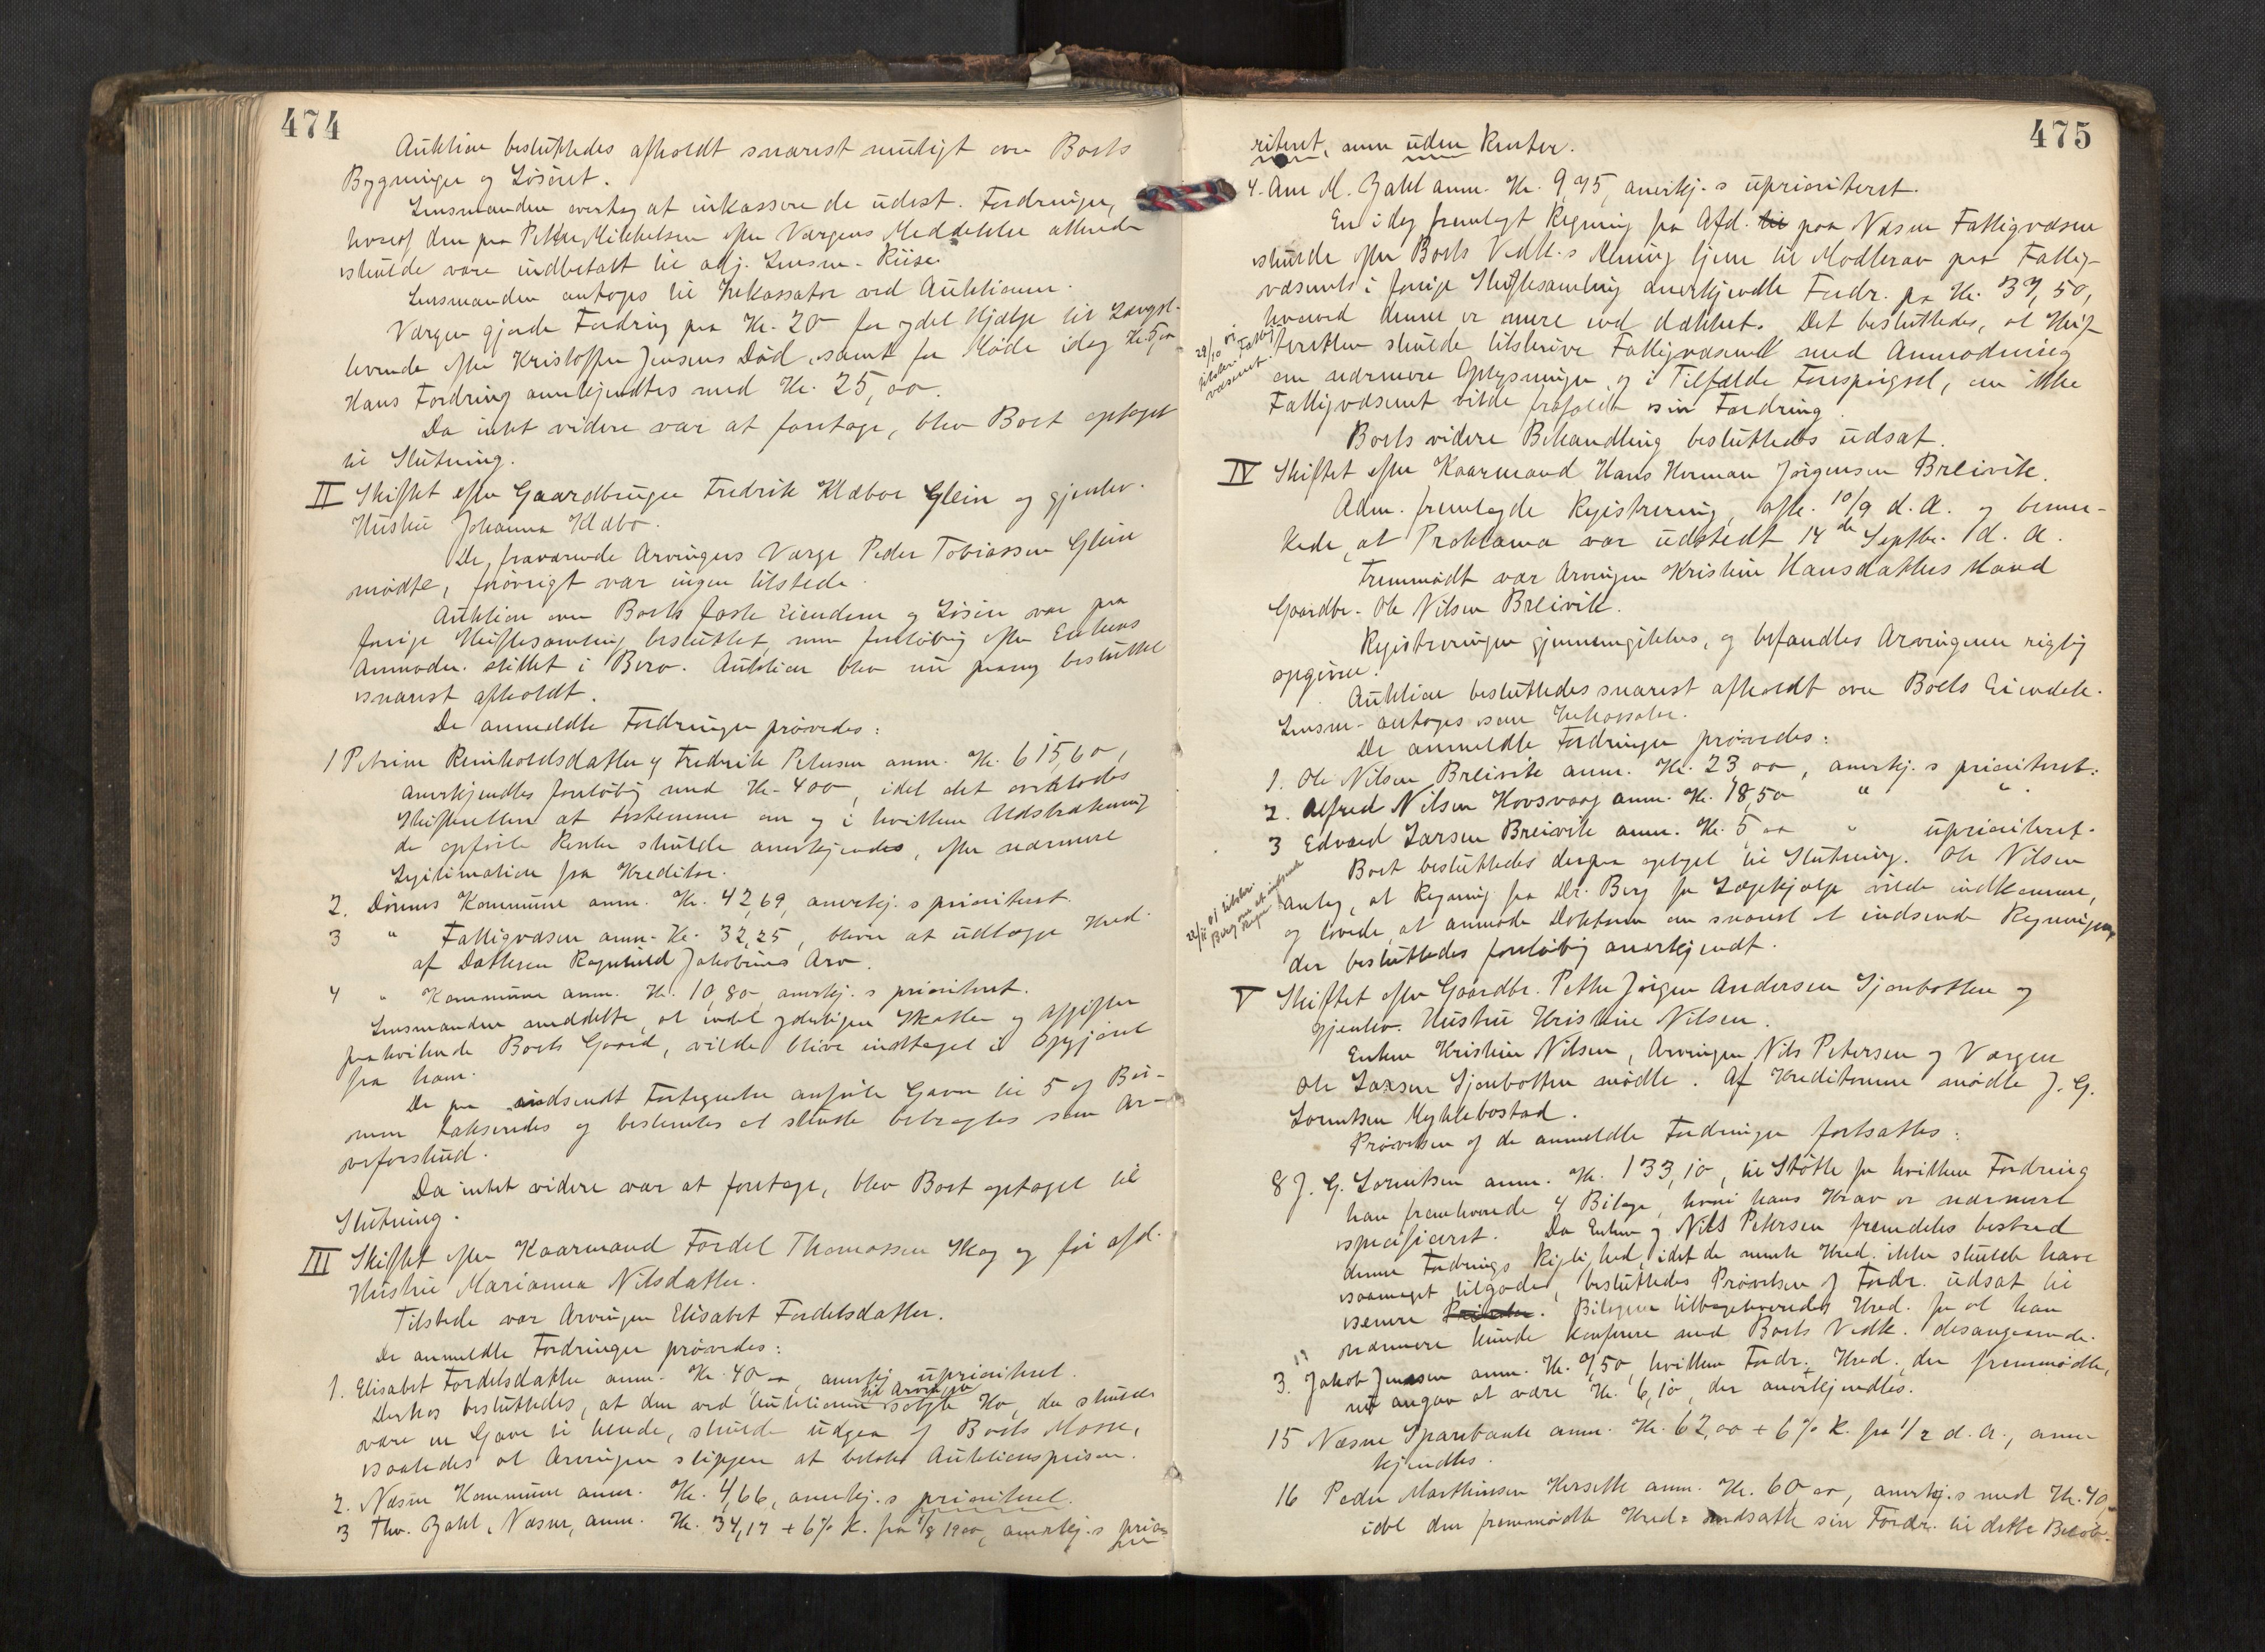 474
Auktion besluttedes afholdt snarest muligt over Boets
Bygninger og Løsøret.
Lensmanden overtog at inkassere de udest. Fordringer,
hvoraf den paa Petter Mikkelsen efter Værgens Meddelelse allerede
skulde være indbetalt til adj. Lensm. Riise.
Lensmanden antoges til Inkassator ved Auktionen.
Værgen gjorde Fordring paa Kr. 20 for ydet Hjælp til Længst-
levende efter Kristoffer Jensens Død, samt for Møde idag Kr. 5,00
Hans Fordring anerkjendtes med Kr. 25,00.
Da intet videre var at foretage, blev Boet optaget
til Slutning.
II Skiftet efter Gaardbruger Fredrik Klæboe Glein og gjenlev.
Hustru Johanna Klæbo.
De fraværende Arvingers Værge Peder Tobiassen Glein
mødte, forøvrigt var ingen tilstede.
Auktion over Boets faste Eiendom og Løsøre var paa
forrige Skiftesamling besluttet, men foreløbig efter Enkens
Anmodn. stillet i Bero. Auktion blev nu paany besluttet
snarest afholdt.
De anmeldte Fordringer prøvedes:
1 Petrine Reinholdsdatter og Fredrik Petersen anm. Kr. 615,60,
anerkjendtes foreløbig med Kr. 400, idet det overlodes
Skifteretten at bestemme om og i hvilken Udstrækning
de opførte Renter skulde anerkjendes, efter nærmere
Legitimation fra Kreditor.
2. Dønnes Kommune anm. Kr. 42,69, anerkj. s prioriteret.
3 " Fattigvæsen anm. Kr. 32,25, bliver at udlægge Kred.
af Datteren Ragnhild Jakobines Arv.
4 " Kommune anm. Kr. 10,80, anerkj. s prioriteret.
Lensmanden meddelte, at endel yderligere Skatter og Afgifter
paahvilende Boets Gaard, vilde blive indtaget i Opgjøret
fra ham.
De paa indsendt Fortegnelse anførte Gaver til 5 af Bør-
nene takseredes og bestemtes at skulde betragtes som Ar-
veforskud.
Da intet videre var at foretage, blev Boet optaget til
Slutning.
III Skiftet efter Kaarmand Fordel Thomassen Skog og før afd.
Hustru Marianna Nilsdatter.
Tilstede var Arvingen Elisabet Fordelsdatter.
De anmeldte Fordringer prøvedes:
1. Elisabet Fordelsdatter anm. Kr. 40,00, anerkj. uprioriteret.
Derhos besluttedes, at den ved Auktionen til Arvingen solgte Ko, der skulde
være en Gave til hende, skulde udgaa af Boets Masse,
saaledes at Arvingen slipper at betale Auktionsprisen.
2. Næsne Kommune anm. Kr. 4,66, anerkj. s prioriteret.
3 Thv. Zahl, Næsne, anm. Kr. 34,17 + 6% R. fra 1/8 1900, anerkj. s prio-
475
riteret, men uden Renter.
4. Am M. Zahl anm. Kr. 9,75, anerkj. s uprioriteret.
En idag fremlagt Regning fra Afd. til paa Næsne Fattigvæsen
skulde efter Boets Vedk.s Mening tjene til Modkrav paa Fattig-
væsenets i forrige Skiftesamling anerkjendte Fordr. paa Kr. 37,50,
hvorved denne er mere end dækket. Det besluttedes, at Skif-
29/10 01 tilskr. Fattig-
væsenet.
teretten skulde tilskrive Fattigvæsenet med Anmodning
om nærmere Oplysninger og i Tilfælde Forespørgsel, om ikke
Fattigvæsenet vilde frafalde sin Fordring.
Boets videre Behandling besluttedes udsat.
IV Skiftet efter Kaarmand Hans Herman Jørgensen Breivik.
Adm. fremlagde Registrering, afh. 10/9 d. A. og bemær-
kede, at Proklama var udstedt 14de Septbr. d. A.
Fremmødt var Arvingen Kristine Hansdatters Mand
Gaardbr. Ole Nilsen Breivik.
Registreringen gjennemgikkes, og befandtes Arvingerne rigtig
opgivne.
Auktion besluttedes snarest afholdt over Boets Eiendele.
Lensm. antoges som Inkassator.
De anmeldte Fordringer prøvedes:
1. Ole Nilsen Breivik anm. Kr. 23,00, anerkj. s prioriteret.
2. Alfred Nilsen Hovsvaag anm. Kr. 18,50 " "
3 Edvard Larsen Breivik anm. Kr. 5,00 " uprioriteret.
Boet besluttedes derpaa optaget til Slutning. Ole Nilsen
22/11 01 tilskr.
Berg om at indsende
Regn.
antog, at Regning fra Dr. Berg for Lægehjælp vilde indkomme,
og lovede, at anmode Doktoren om snarest at indsende Regningen,
der besluttedes foreløbig anerkjendt.
V Skiftet efter Gaardbr. Petter Jørgen Andersen Sjonbotten og
gjenlev. Hustru Kristine Nilsen.
Enken Kristine Nilsen, Arvingen Nils Petersen og Værgen
Ole Larsen Sjonbotten mødte. Af Kreditorerne mødte J. G.
Lorentsen Myklebostad.
Prøvelsen af de anmeldte Fordringer fortsattes:
8 J. G. Lorentsen anm. Kr. 133,10, til Støtte for hvilken Fordring
han fremhoverede 4 Bilage, hvori hans Krav er nærmere
specificeret. Da Enken og Nils Petersen fremdeles bestred
denne Fordrings Rigtighed, idet de mente Kred. ikke skulde have
saameget tilgode, besluttedes Prøvelsen af Fordr. udsat til
senere. Bilagene tilbageleveredes Kred. for at han
nærmere kunde konferere med Boets Vedk. desangaaende.
13. Jakob Jensen anm. Kr. 7,50, hvilken Fordr. Kred., der fremmødte,
nu angav at være Kr. 6,10, der anerkjendtes.
15 Næsne Sparebank anm. Kr. 62,00 + 6% R. fra 1/2 d. A., aner-
kjendtes.
16 Peder Marthinsen Hersette anm. Kr. 60,00, anerkj. s med Kr. 40,00
idet den fremmødte Kred. nedsatte sin Fordr. til dette Beløb.